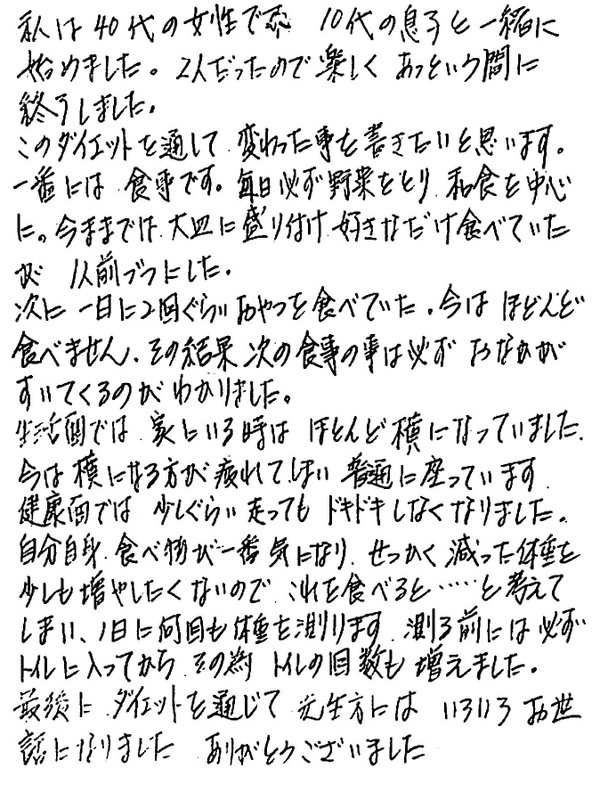 私は40代の女性ですが 10代の息子と一緒に
始めました。2人だったので楽しく あっという間に
終了しました。
このダイエットを通して 変わった事を書きたいと思います。
一番には 食事です。毎日必ず野菜をとり 和食を中心
に。今までは 大皿に盛り付け 好きなだけ食べていた
が 1人前づつにした。
次に 一日に2回ぐらいおやつを食べていた。今は ほどんど
食べません、その結果 次の食事の事は必ず おなかが
すいてくるのが わかりました。
生活面では 家にいる時は ほとんど横になっていました、
今は 横になる方が疲れてしまい 普通に座っています
健康面では 少しぐらい走っても ドキドキしなくなりました。
自分自身 食べ物が一番気になり せっかく減った体重を
少しも増やしたくないので これを食べると……と考えて
しまい、1日に何回も体重を測ります 測る前には必ず
トイレに入ってから その為 トイレの回数も増えました。
最後に ダイエットを通じて 先生方には いろいろお世
話になりました ありがとうございました